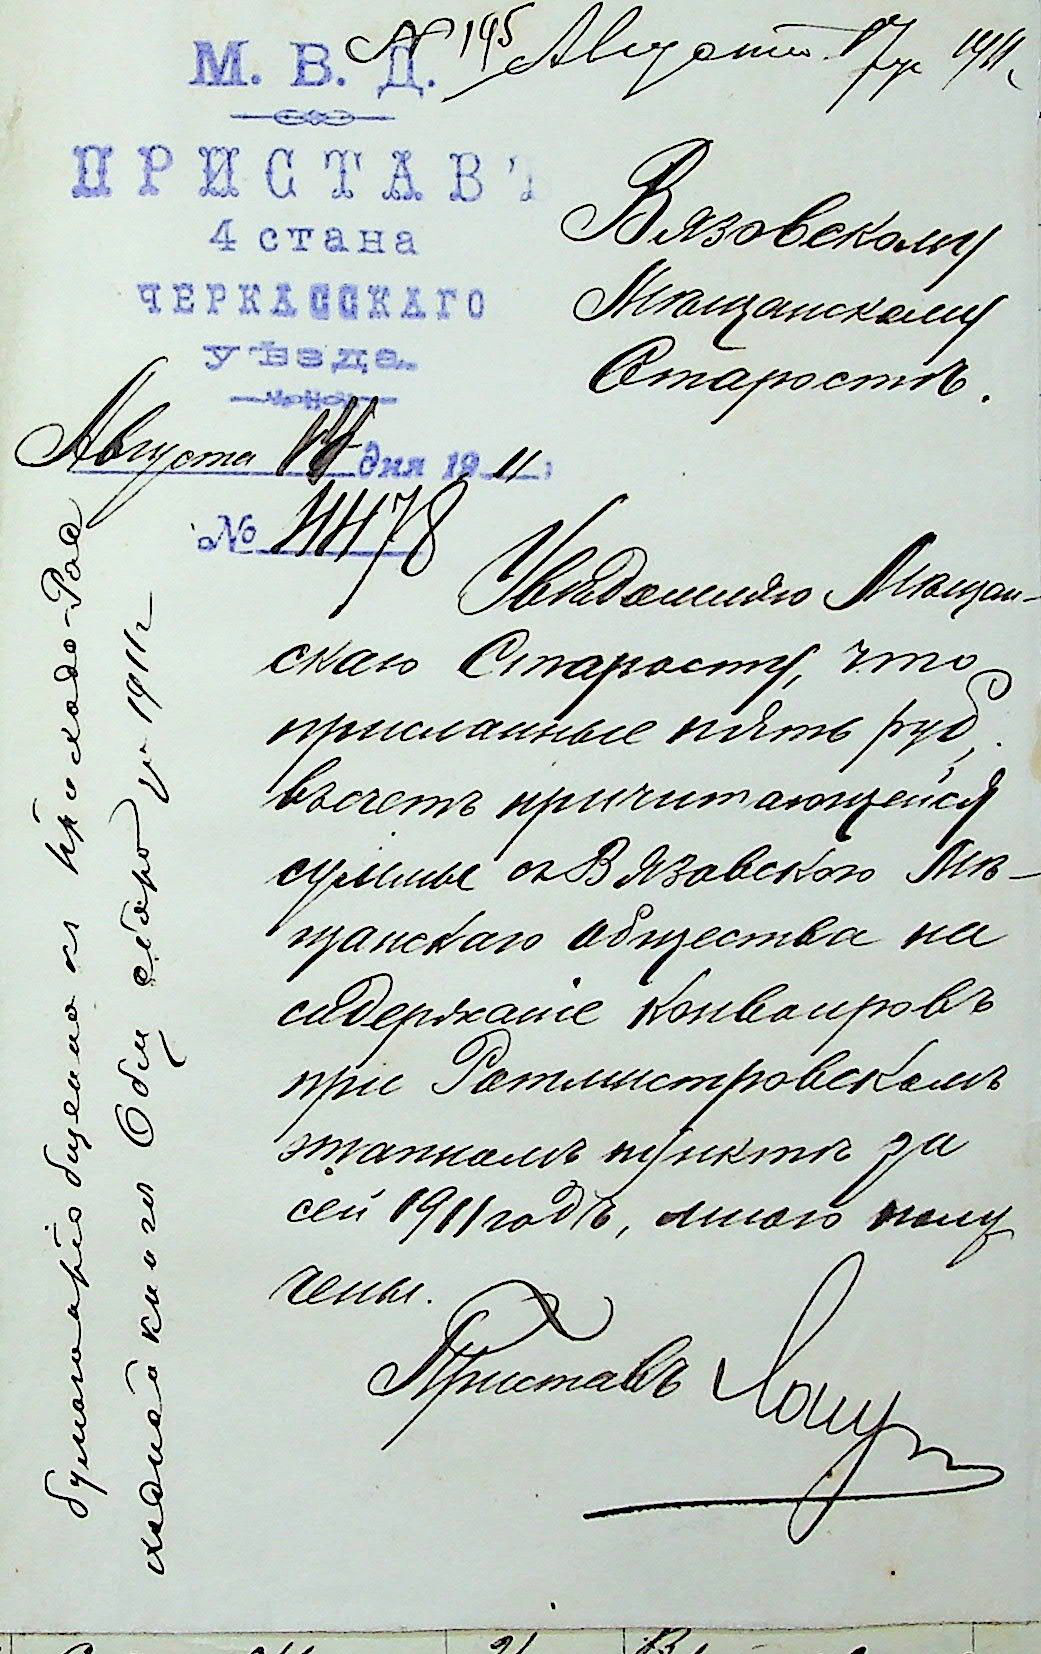 № 195 Августа 17 дня 1911 г.
М. В. Д.
ПРИСТАВЪ
4 стана
ЧЕРКАССКАГО
уѣзда.
Августа дня 1911 г.
№ 4478
Вязовскому
Мѣщанскому
Старостѣ.
Увѣдомляю Мѣщан-
скаго Старосту, что
присланные пять руб.
въ счетъ причитающейся
суммы съ Вязовскаго Мѣ-
щанскаго общества на
содержаніе конвоировъ
при Ротмистровскомъ
этапномъ пунктѣ за
сей 1911 годъ, мною полу
чены.
Приставъ
къ Приходо-Рас
ходной книги сбора за 1911 г